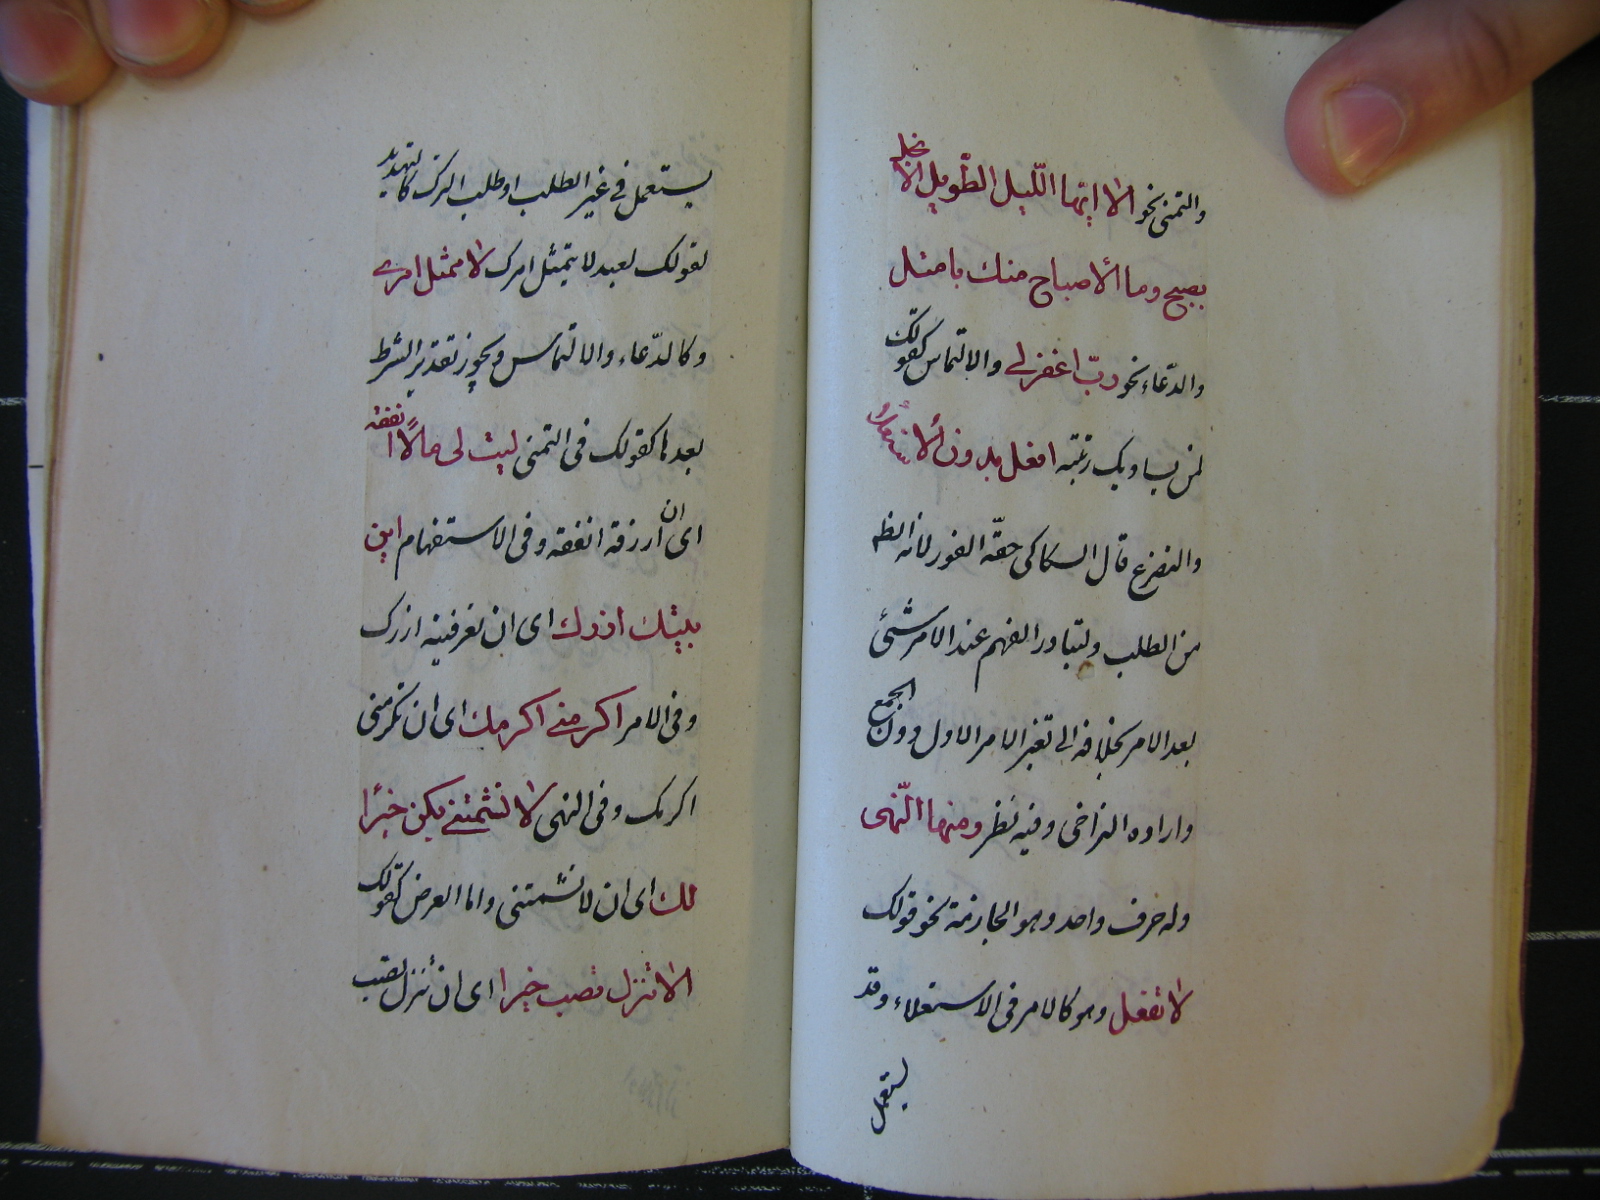 والتمنى نحو الا ايّها اللّيل الطّويل الا انجلى
بصبح وما الاصباح منك بامثل
والدّعاء نحو ربّ اغفر لى والالتماس كقولك
لمن يساويك رتبته افعل بدون الاستعلاء
والتضرع قال السكاكى حقّه الفور لانه الظ
من الطلب ولتبادر الفهم عند الامر بشئ
بعد الامر بخلافه الى تغير الامر الاول دون الجمع
وارادة التراخى وفيه نظر ومنها النّهى
وله حرف واحد وهو لا الجازمة نحو قولك
لا تفعل وهو كالامر فى الاستعلاء وقد
يستعمل
يستعمل فى غير الطلب او طلب الترك كالتهديد
لقولك لعبد لا يتمثل امرك لا تمثل امرى
وكالدّعاء والالتماس ويجوز تقدير الشرط
بعدها كقولك فى التمنى ليت لى مالًا انفقه
اى ان ارزقه انفقه وفى الاستفهام اين
بيتك ازرك اى ان تعرفنيه ازرك
وفى الامر اكرمنى اكرمك اى ان تكرمنى
اكرمك وفى النهى لا تشمتنى يكن خيرًا
لك اى ان لا تشمتنى واما العرض كقولك
الا تنزل تصب خيرا اى ان تنزل تصب